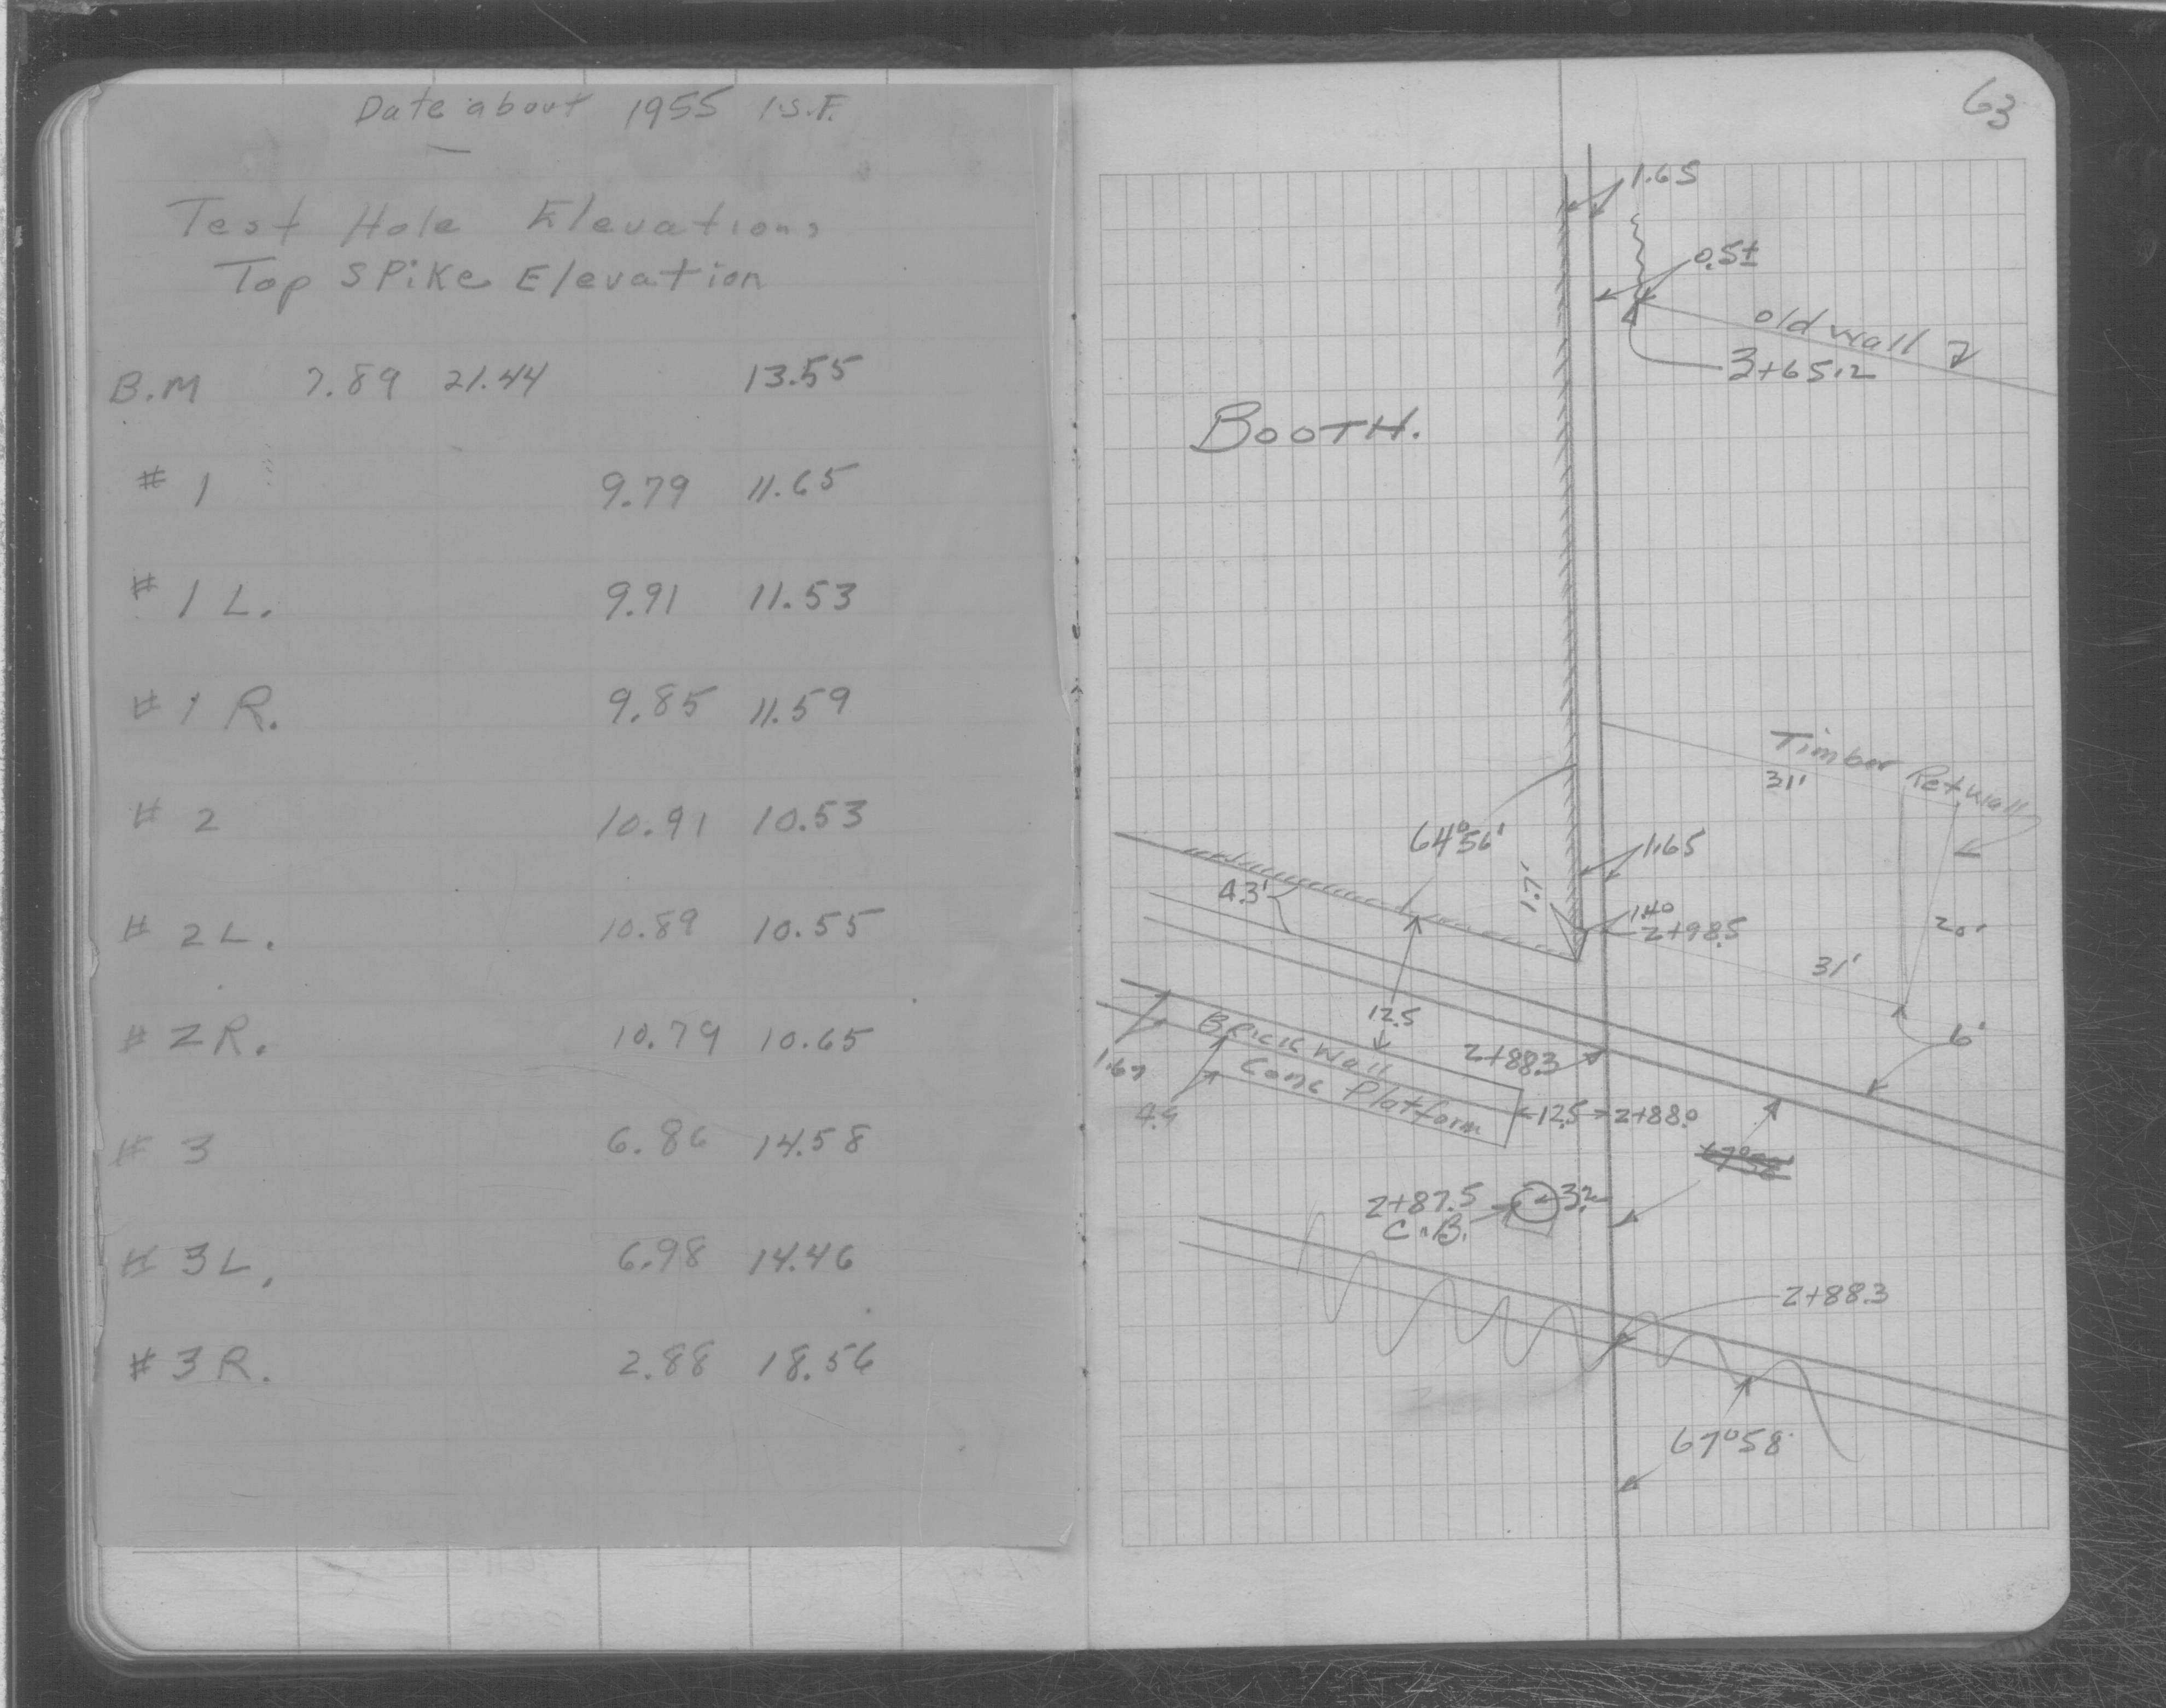 Date about 1955 I.S.F.
Test Hole Elevations
Top SPiKe Elevation
B.M 7.89 21.44 13.55
# 1 9.79 11.65
# 1 L. 9.91 11.53
# 1 R. 9.85 11.59
# 2 10.91 10.53
# 2 L. 10.89 10.55
# 2 R. 10.79 10.65
# 3 6.86 14.58
# 3 L. 6.98 14.46
# 3 R. 2.88 18.56
63
1.65
0.5±
old wall
3+65.2
BOOTH.
Timber Ret wall
31'
64°56'
1.65
4.3'
1.7'
1.40
2+98.5
20'
31'
12.5
6'
Brick Wall
2+88.3
Conc Platform
1.67
4.4
12.5 2+88.0
67°58'
2+87.5 3.2
C.B.
2+88.3
67°58'